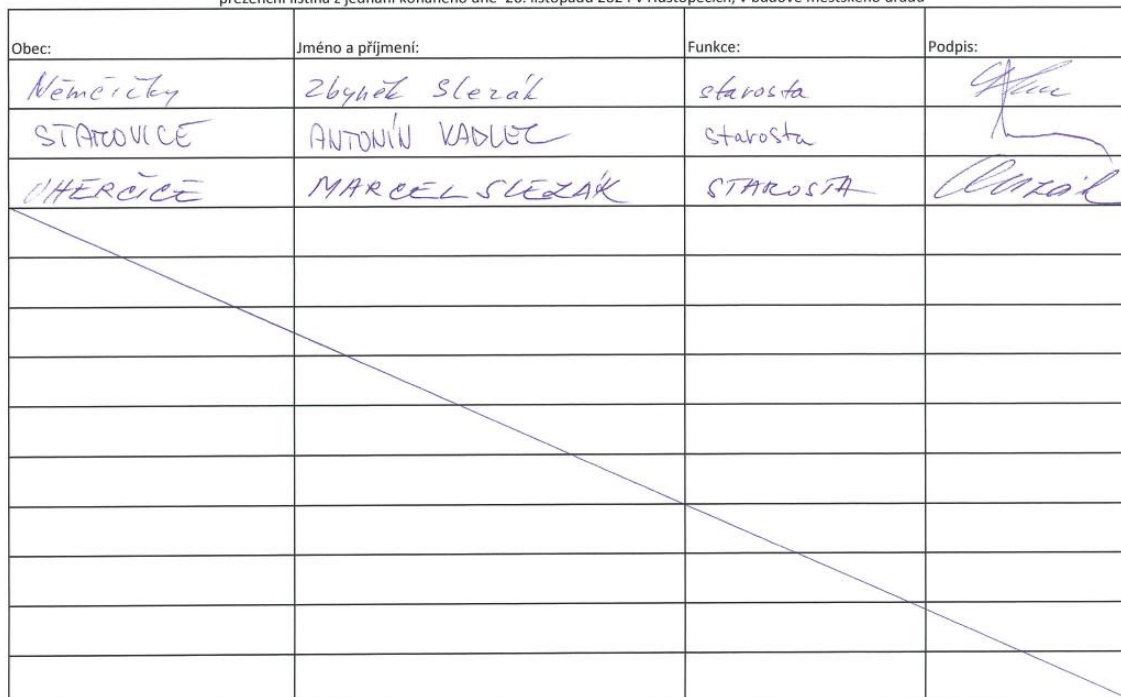 prezenční listina z jednání konaného dne 20. listopadu 2024 v Hustopečích, v budově městského úřadu
Obec: Jméno a příjmení: Funkce: Podpis:
Němčičky Zbyněk Slezák starosta
STAROVICE ANTONÍN KADLEC starosta
UHERČICE MARCEL SLEZÁK STAROSTA